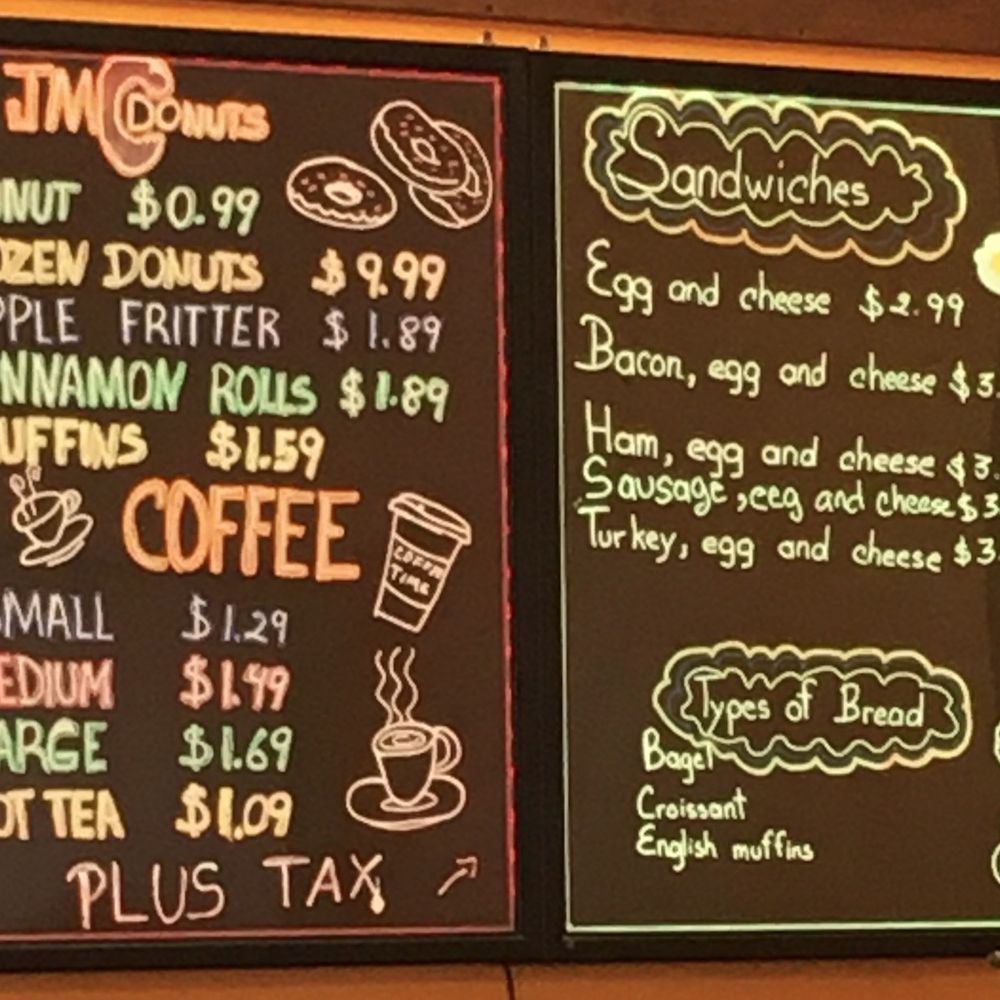 JMC DONUTS
NUT $0.99
OZEN DONUTS $9.99
PPLE FRITTER $1.89
NNAMON ROLLS $1.89
UFFINS $1.59
COFFEE
COFFEE TIME
SMALL $1.29
EDIUM $1.49
ARGE $1.69
OT TEA $1.09
PLUS TAX
Sandwiches
Egg and cheese $2.99
Bacon, egg and cheese $3.
Ham, egg and cheese $3.
Sausage, eeg and cheese $3
Turkey, egg and cheese $3
Types of Bread
Bagel
Croissant
English muffins